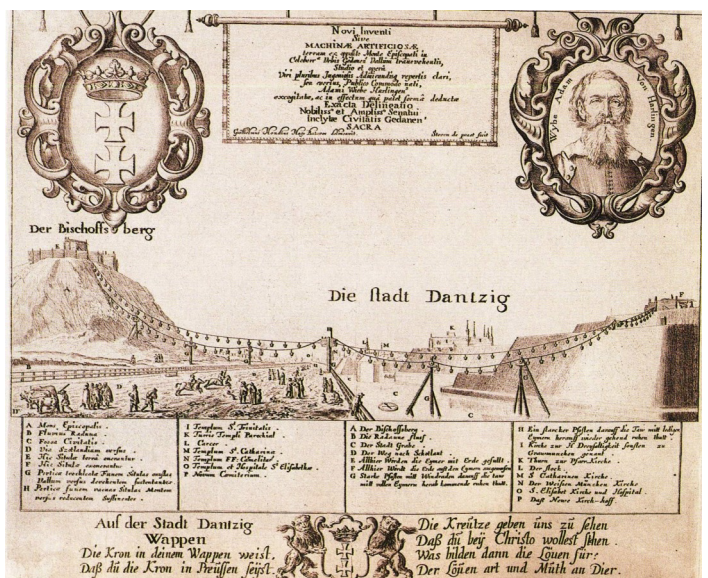 Novi Inventi
Sive
MACHINÆ ARTIFICIOSÆ
terram ex opposito Monte Episcopali in
Urbis Gedanensis Vallum transvehentis,
Studio et operâ
Viri pluribus Ingenijs repertis clari,
Publico Commodo nati,
Adami Wiebe Harlingens
excogitatæ, ac in effectum deductæ
Exacta Delineatio
Nobilissº et Ampliss Senatui
Inclytæ Civitatis Gedanens
SACRA
Wybe Adam Von Harlingen.
Der Bischoffsberg
Die stadt Dantzig
A Mons Episcopalis.
B Fluvius Radauna.
C Fossa Civitatis.
D Via Scotlandiam versus
E Hic Situlæ terra onerantur
F Hic Situlæ exonerantur
G Pertica trochleata Funem Situlas onustas
Vallum versus devehentem sustentantes
H Pertica funem vacuas Situlas Montem
versus reducentem Suffinentes.
I Templum St. Trinitatis.
K Turris Templi Parochial.
L Carcer
M Templum St. Catharina.
N Templum FF. Carmelitar
O Templum et Hospitale St Elisabethæ.
P Novum Cœmiterium.
A Der Bischoffsberg.
B Die Radaune fluss.
C Der Stadt Grabe.
D Der Weg nach Schotlant.
E Allhier Werden die Eymer mit Erde gefullt.
F Allhier Würdt die Erde auss den Eymern
G Starke Pfosten mitt Windraden darauff die tau
mitt vollen Eymern herab kommende ruhen thutt.
H Ein starcker Pfosten darauff die Tau mitt ledigen
Eymern herauff wieder gehend ruhen thutt.
I Kirche zur H Dreyfaltigkeit sonsten zu
Grawmunchen genant.
K Thurn zur Pfarr Kirche.
L Der stock.
M S Catharinen Kirche.
N Der Weissen München Kirche
O S. Elisabet Kirche und Hospital.
P Dass Newe Kirch-hoff.
Auf der Stadt Dantzig
Wappen
Die Kron in deinem Wappen weist.
Daß dü die Kron in Preüssen seÿst.
Die Kreütze geben üns zü sehen
Daß dü beÿ Christo wollest stehen.
Was bilden dann die Löuen für?
Der Löuen art und Müth an Dier.